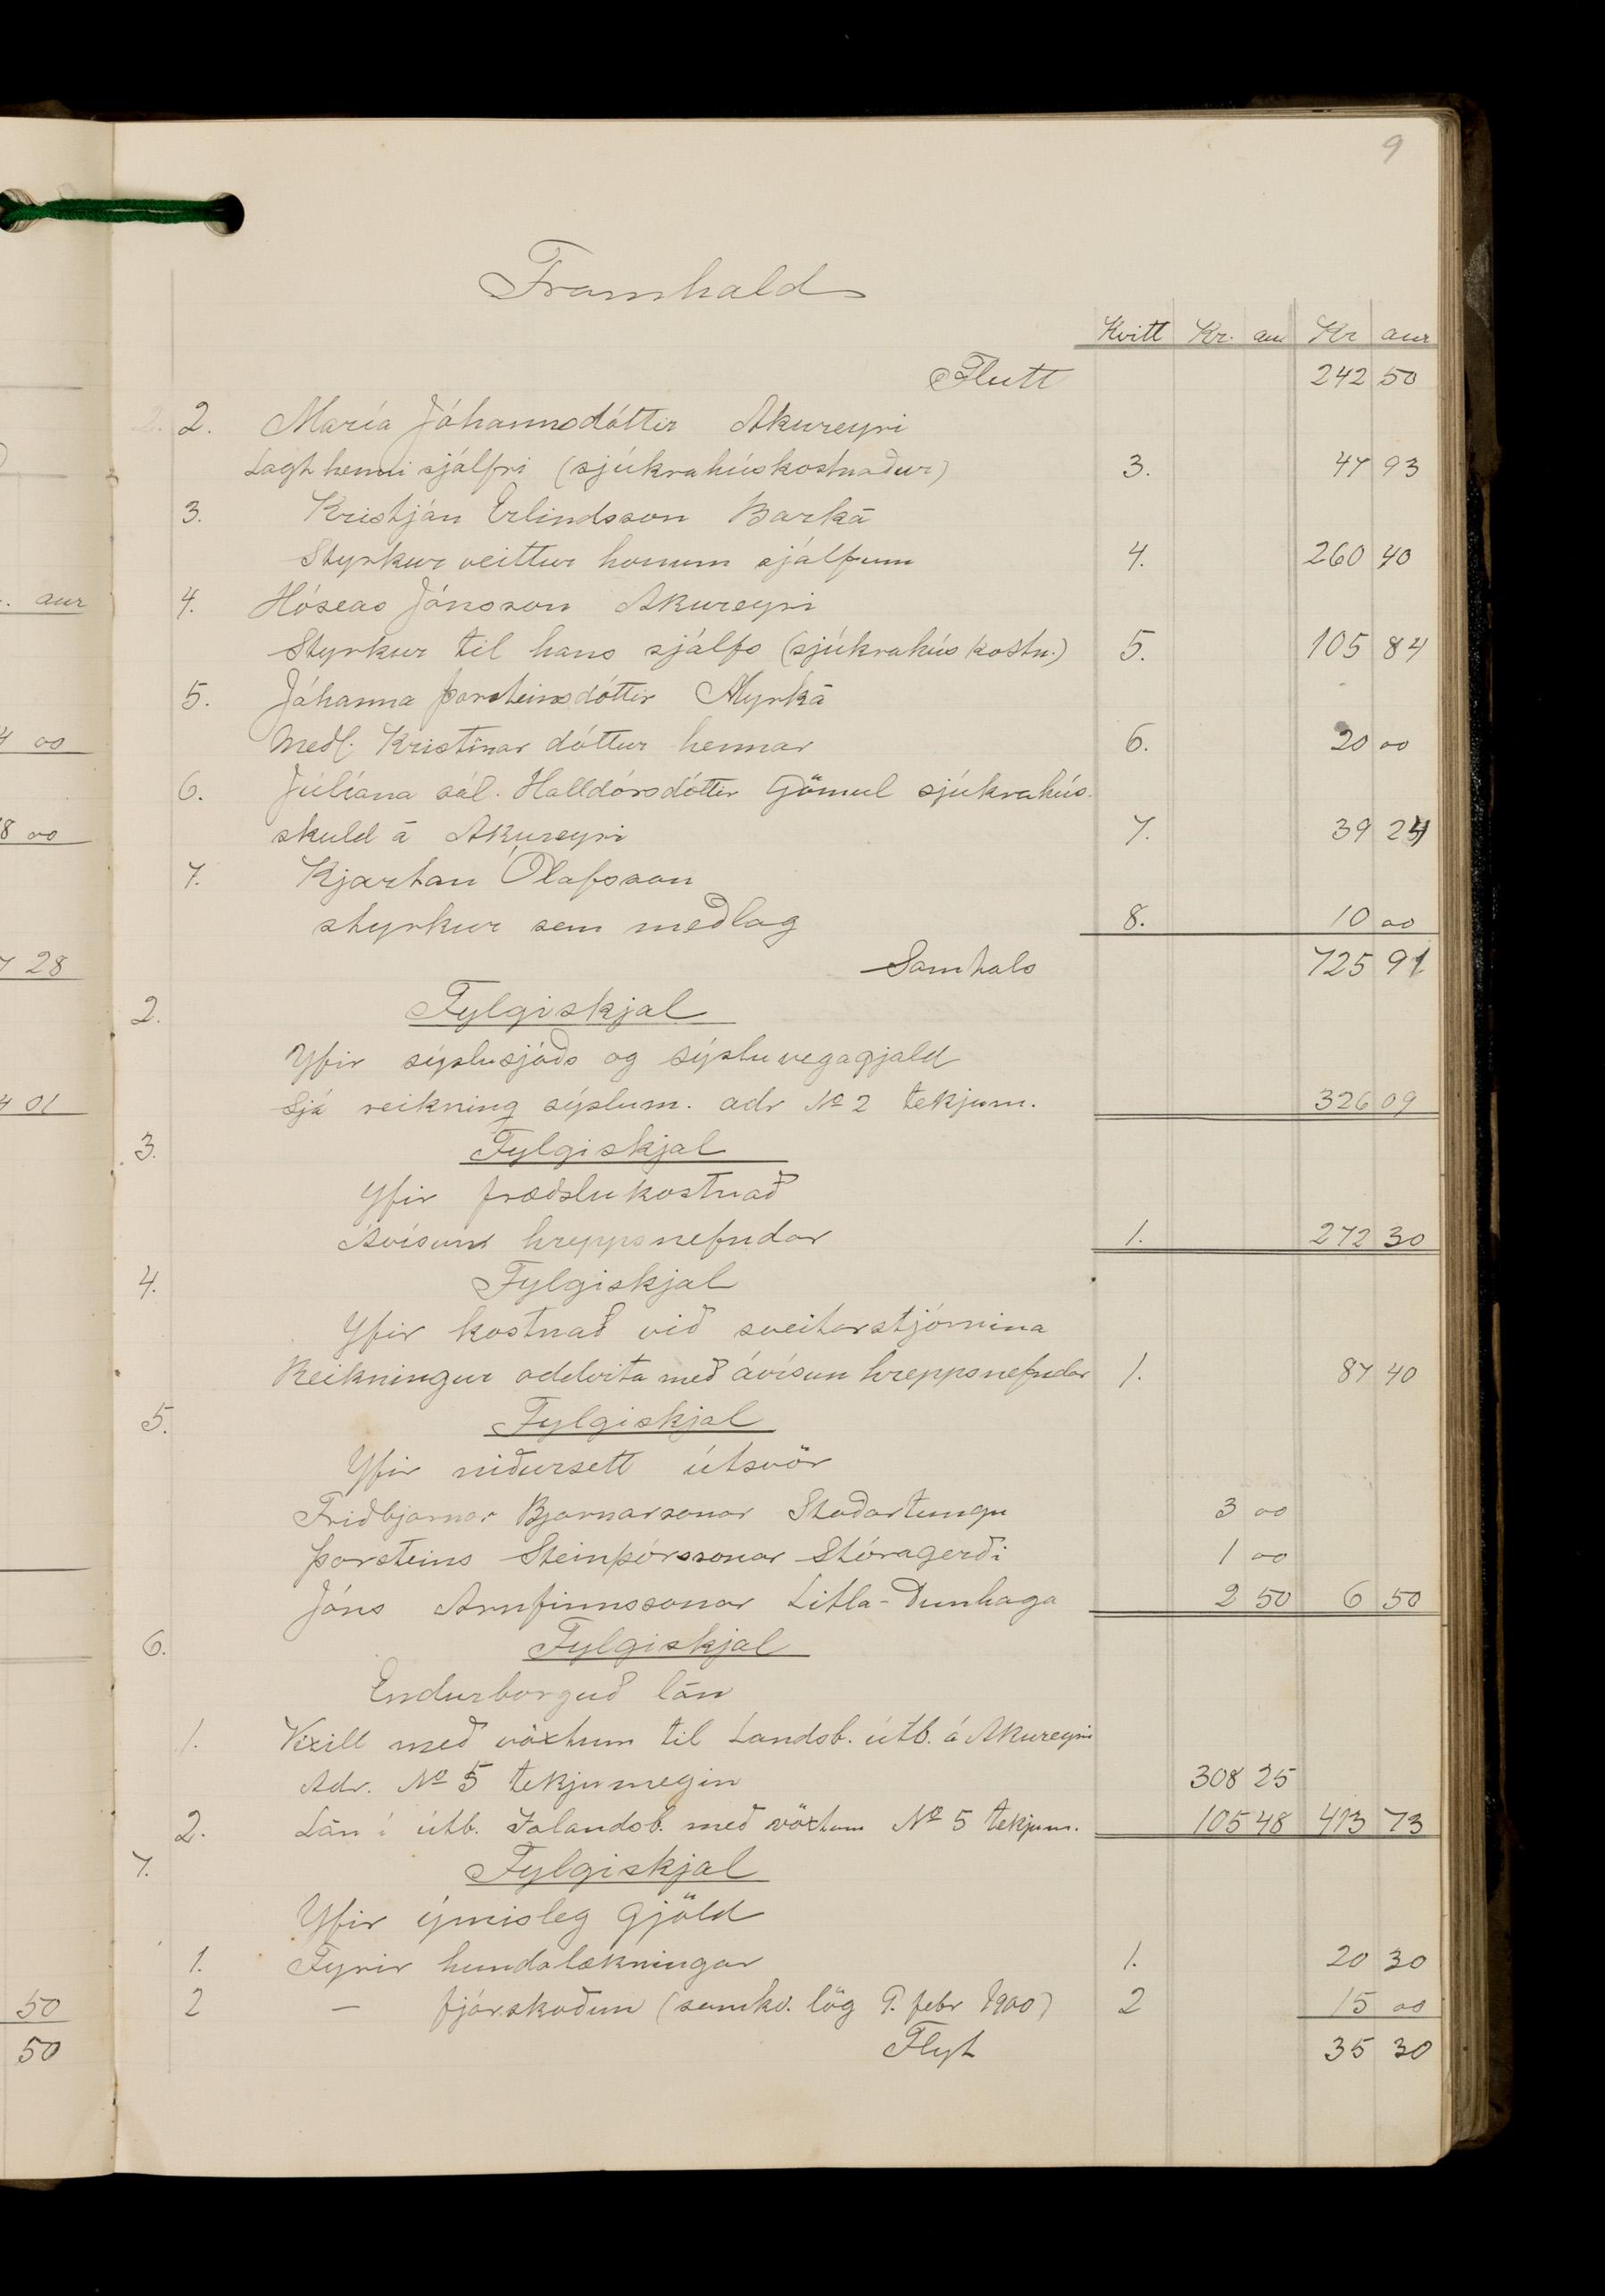 9
Framhald
Kvitt Kr. au Kr aur
Flutt 242 50
2. María Jóhannsdóttir Akureyri
Lagt henni sjálfri (sjúkrahúskostnaður) 3. 47 93
3. Kristján Erlindsson Barká
Styrkur veittur honum sjálfum 4. 260 40
4. Hóseas Jónsson Akureyri
Styrkur til hans sjálfs (sjúkrahús kostn.) 5. 105 84
5. Jóhanna Þorsteinsdóttir Myrká
Meðl. Kristínar dóttur hennar 6. 20 00
6. Júlíana sál. Halldórsdóttir Gömul sjúkrahús-
skuld á Akureyri 7. 39 24
7. Kjartan Ólafsson
styrkur sem meðlag 8. 10 00
Samtals 725 91
2. Fylgiskjal
Yfir sýslusjóðs og sýsluvegagjald
Sjá reikning sýslum. adr No 2 tekjum. 326 09
3. Fylgiskjal
Yfir fræðslukostnað
Ávísun hreppsnefndar 1. 272 30
4. Fylgiskjal
Yfir kostnað við sveitarstjórnina
Reikningur oddvita með ávísun hreppsnefndar 1. 87 40
5. Fylgiskjal
Yfir niðursett útsvör
Friðbjarnar Bjarnarsonar Staðartungu 3 00
Þorsteins Steinþórssonar Stóragerði 1 00
Jóns Arnfinnssonar Litla-Dunhaga 2 50 6 50
6. Fylgiskjal
Endurborguð lán
1. Víxill með vöxtum til Landsb. útb. á Akureyri
Adr. No 5 tekjumegin 308 25
2. Lán í útb. Íslandsb. með vöxtum No 5 tekjum. 105 48 413 73
7. Fylgiskjal
Yfir ýmisleg gjöld
1. Fyrir hundalækningar 1. 20 30
2 — fjárskoðun (samkv. lög 9. febr 1900) 2 15 00
Flyt 35 30
. aur
4 00
8 00
7 28
4 01
50
50